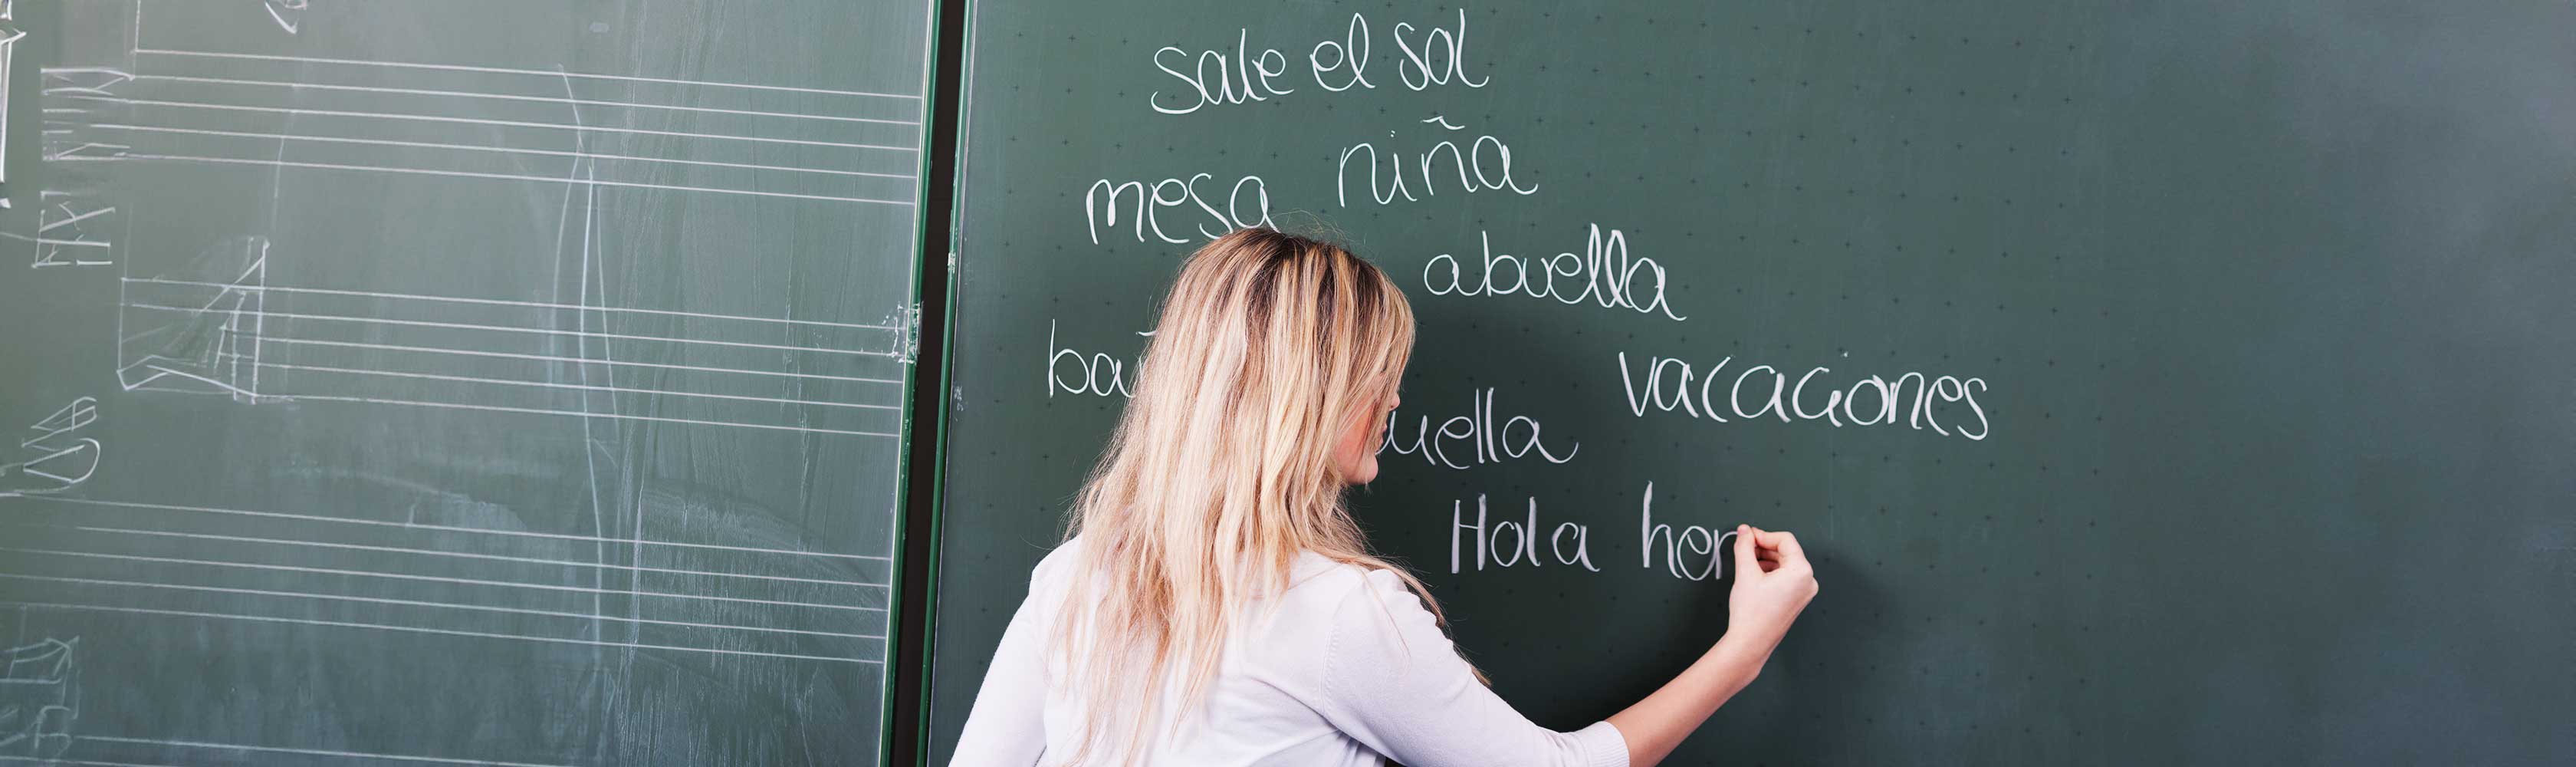 sale el sol
mesa niña
abuella
vacaciones
uella
Hola her